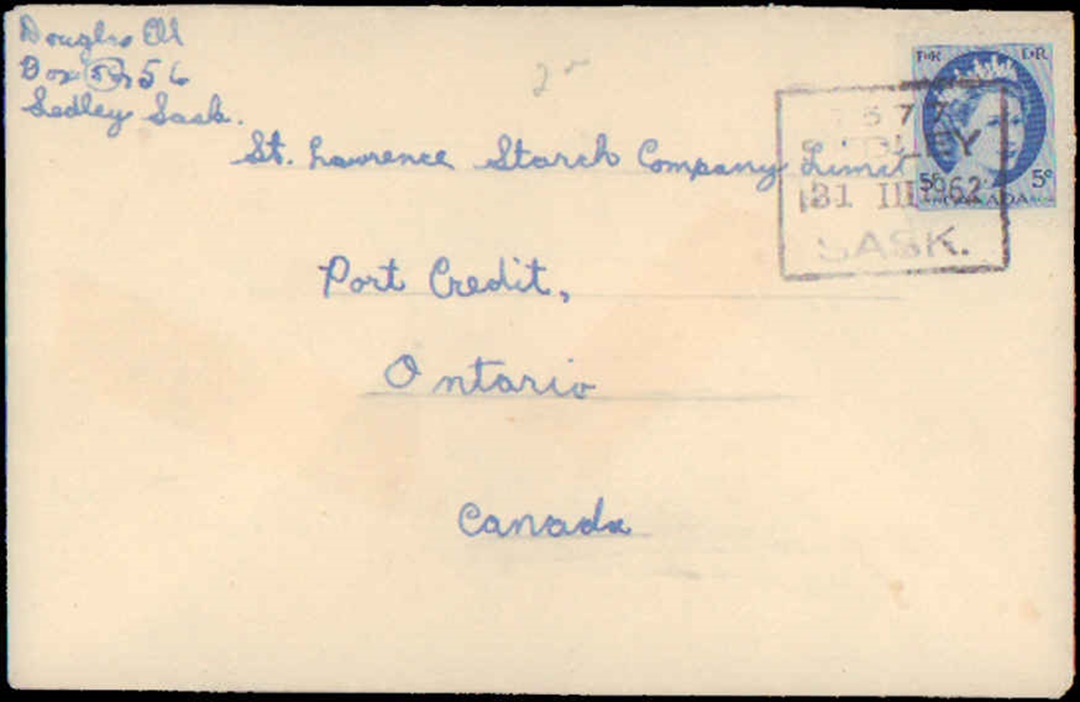 Douglas
Box 56
Sedley Sask.
St. Lawrence Starch Company Limit
Port Credit,
Ontario
Canada
SEDLEY
31 III 1962
SASK.
5¢ 5¢
CANADA